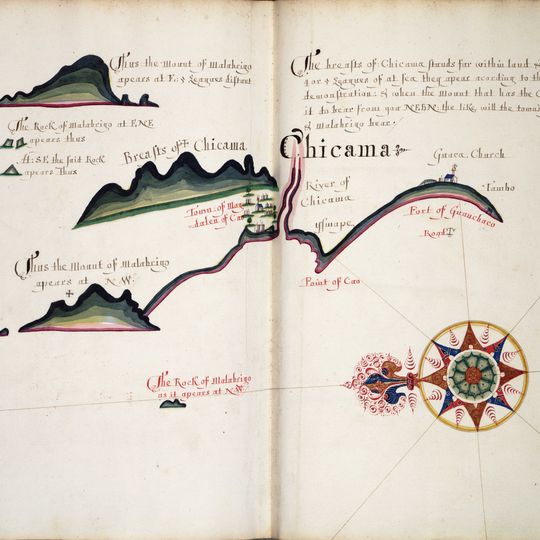 Thus the Mount of Malabrigo
apears at E: 4 Leagues distant
The Rock of Malabrigo at ENE
apears thus
At SE the said Rock
apears thus
Breasts of Chicama
Town of Mag
dalea of Cao
Thus the Mount of Malabrigo
apears at NW.
The Rock of Malabrigo
as it apears at NW.
The breasts of Chicama stands far within land &
4 or 5 Leagues of at sea they apear acording to the
demonstration: & when the mount that has the
it to bear from you NEBN. the like will the town
of Malabrigo bear.
Chicama
Guaca Church
Tambo
River of
Chicama
Port of Guanchaco
Road
Point of Cao